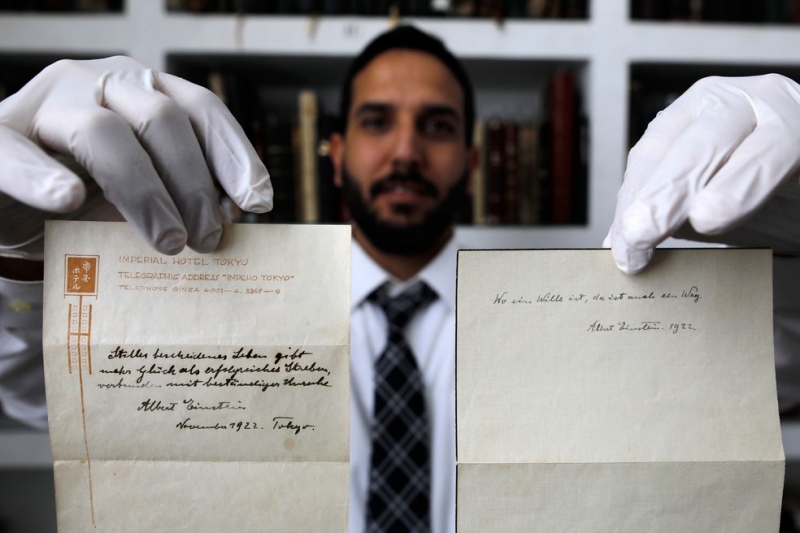 IMPERIAL HOTEL TOKYO
TELEGRAPHIC ADDRESS "IMPEHO TOKYO"
TELEPHONE GINZA
帝国
ホテル
Stilles bescheidenes Leben gibt
mehr Glück als erfolgreiches Streben,
verbunden mit beständiger Unruhe
Albert Einstein
November 1922. Tokyo.
Wo ein Wille ist, da ist auch ein Weg.
Albert Einstein. 1922.